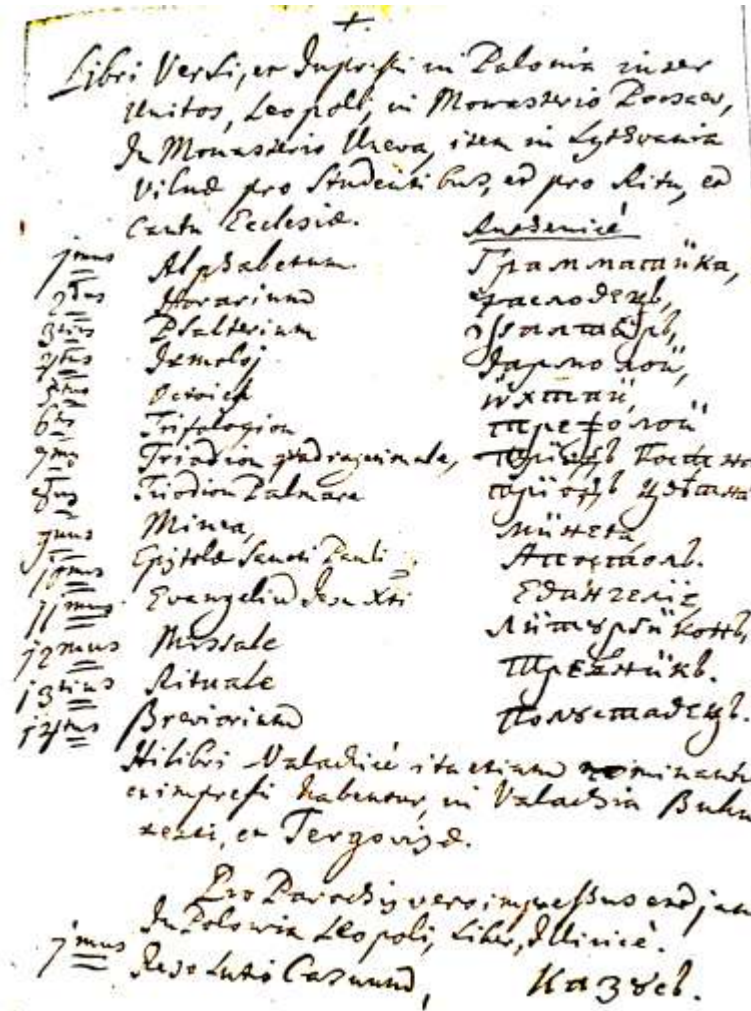 +
Libri Versi, et Impressi in Polonia inter
Unitos, Leopoli, in Monasterio Poczaev,
In Monasterio Uneva, item in Lythvania
Vilnæ pro Studentibus, et pro Ritu, et
Cantu Ecclesiæ. Ruthenicè
1mus Alphabetum Грамматайка,
2dus Horarium Часловецъ,
3tius Psalterium Ѱалтырь,
4tus Irmoloj Ярмолой,
5tus Octoich Ѡхтай,
6tus Trifologion Трефолой
7mus Triodion quadragesimale, Трїодъ Постна
8vus Triodion Palmare Трїодъ Цвѣтна
9nus Minea, Минеѧ,
10mus Epistolæ Sancti Pauli. Апостолъ.
11mus Evangeliu Jesu Xti Евангелїе
12mus Missale Литургиконъ,
13tius Rituale Требникъ.
14tus Breviarium Полуставецъ.
Hi libri Valachicè ita etiam nominantur
et impressi habentur, in Valachia Buku
resti, et Tergovistæ.
Pro Parochijs vero impressus est jam
In Polonia Leopoli, Liber, Illiricè.
1mus Resolutio Casuum, Казусъ.